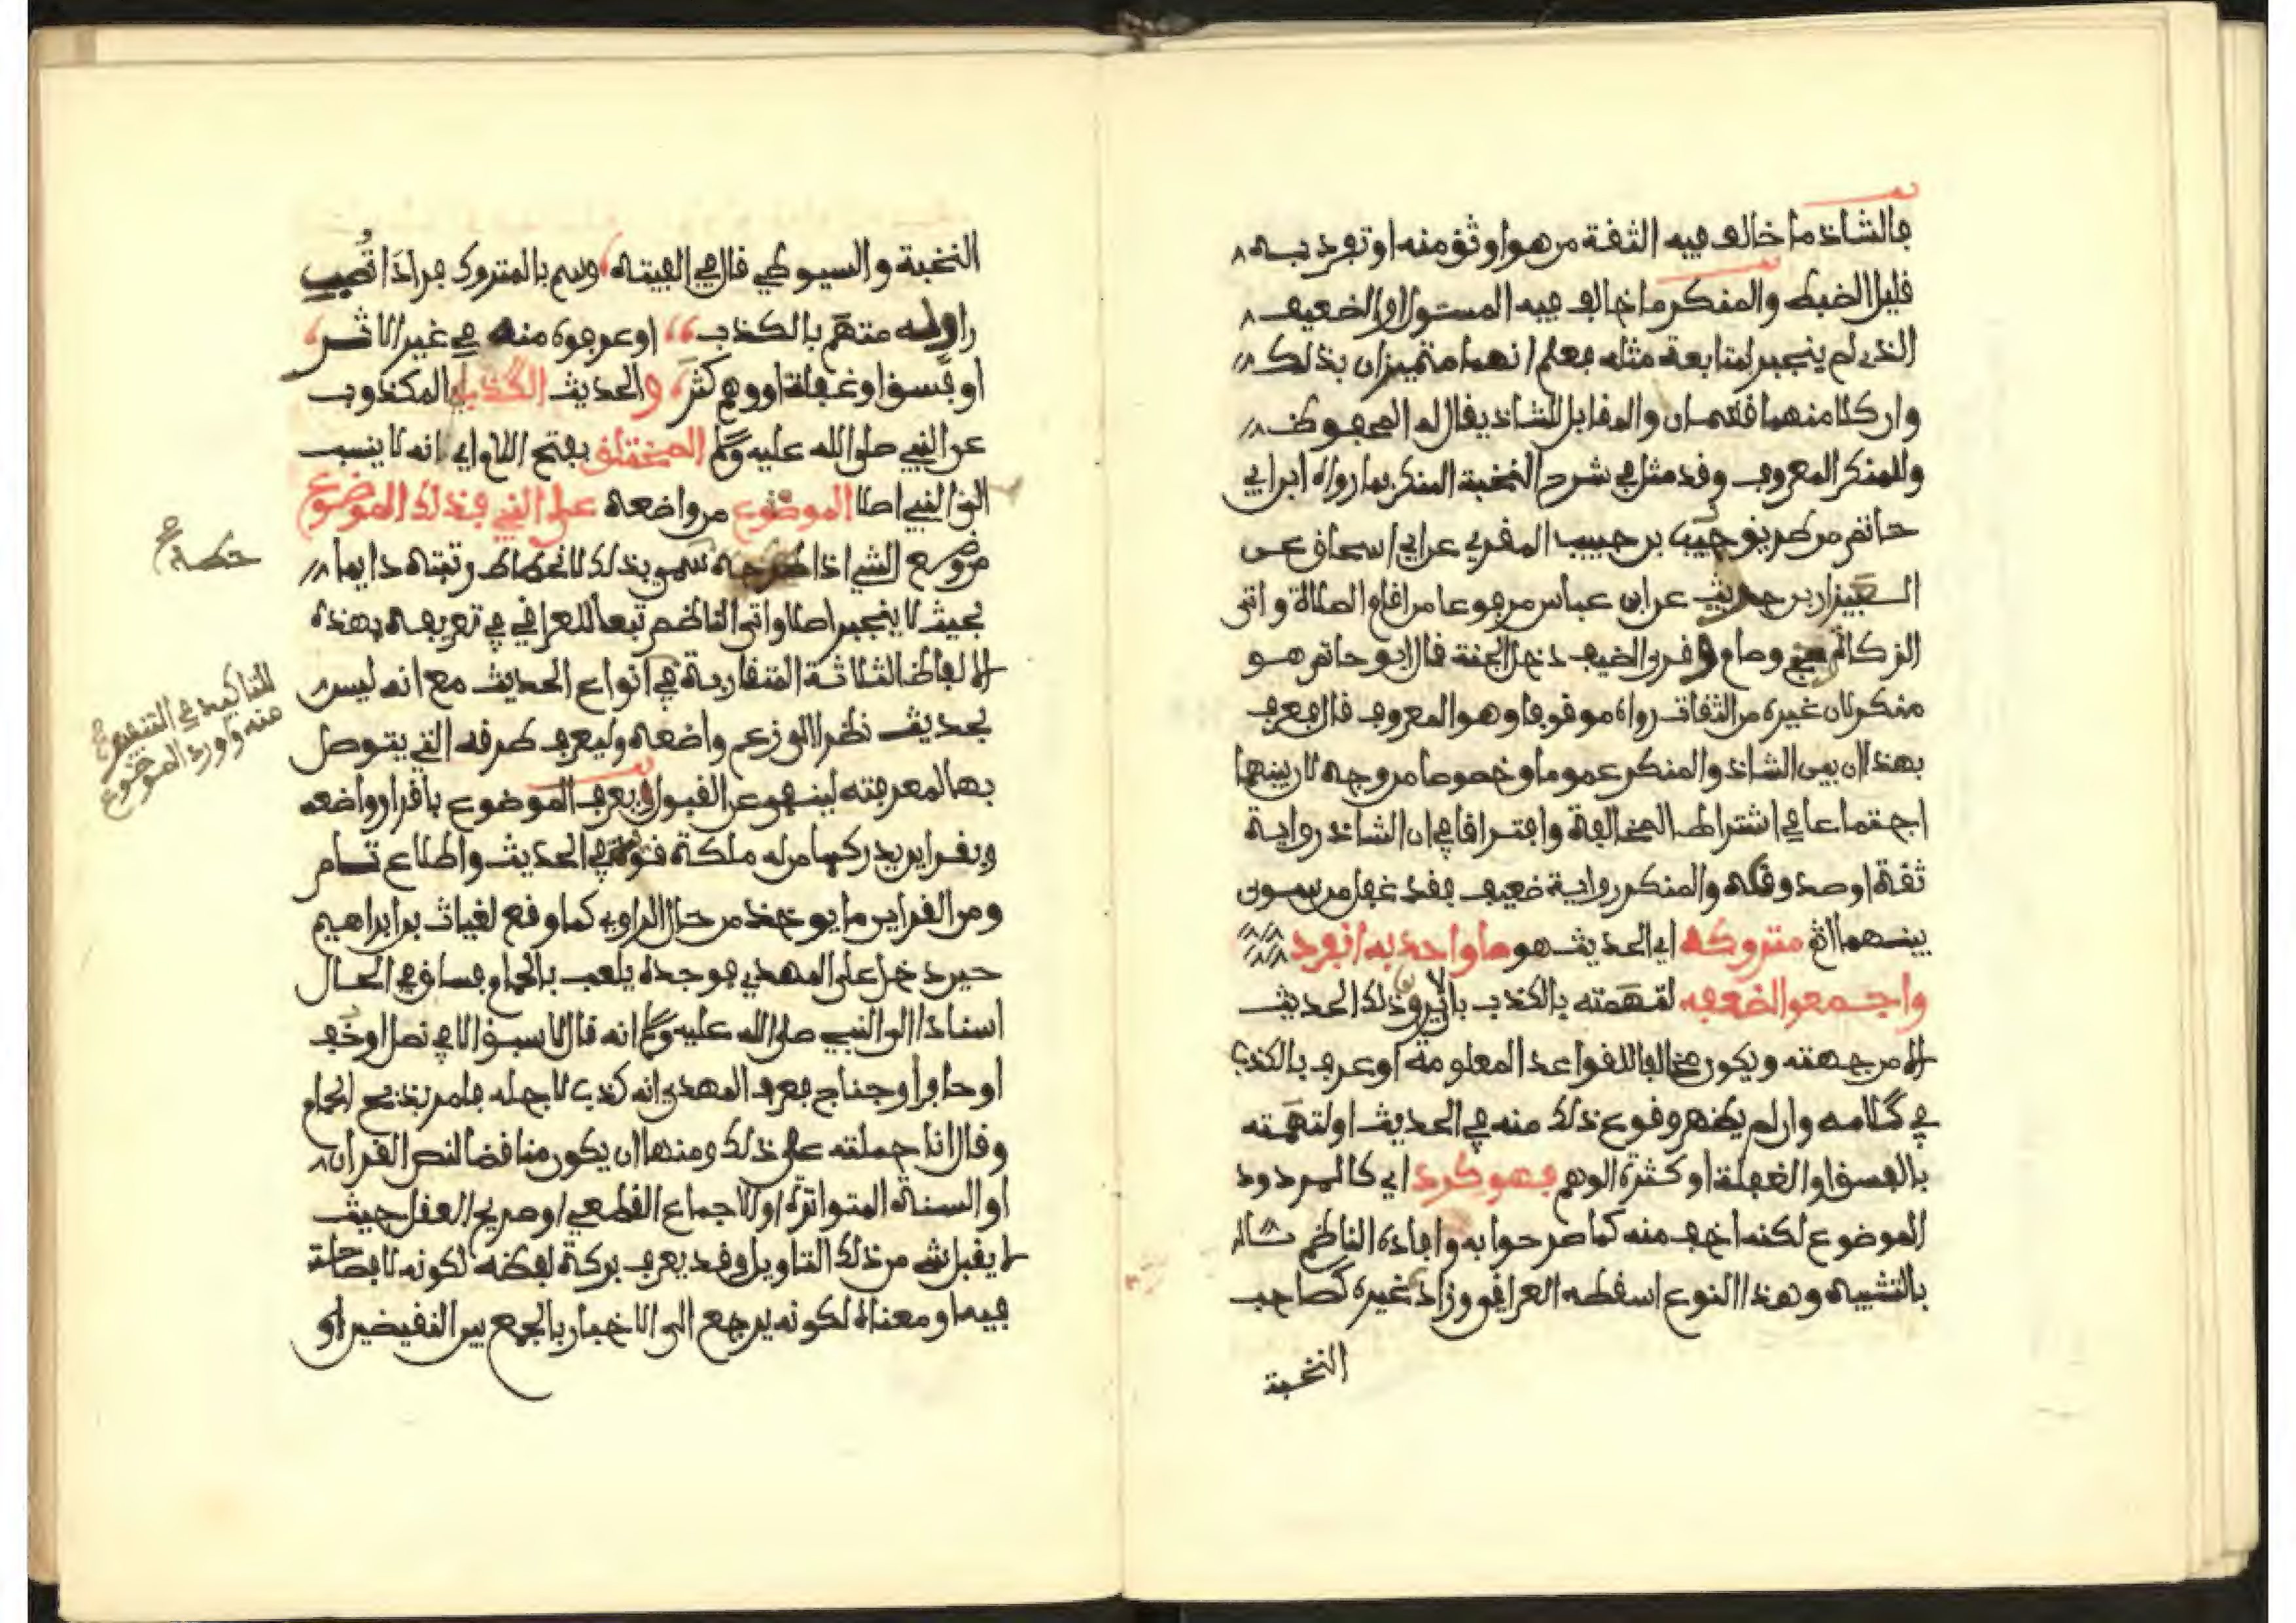 فالشاذ ما خالف فيه الثقة من هو اوثق منه او تفرد به
قليل الضبط والمنكر ما خالف فيه المستور او الضعيف
الذي لم ينجبر لمتابعة مثله فعلم انهما متميزان بذلك
وان كلا منهما قسمان والمقابل للشاذ يقال له المحفوظ
وللمنكر المعروف وقد مثل في شرح النخبة المنكر بما رواه ابن ابي
حاتم من طريق حبيب بن حبيب المقري عن ابي اسحاق عن
العيزار بن حريث عن ابن عباس مرفوعا من اقام الصلاة واتى
الزكاة وحج وصام وقرى الضيف دخل الجنة قال ابو حاتم هو
منكر لان غيره من الثقات رواه موقوفا وهو المعروف قال فعرف
بهذا ان بين الشاذ والمنكر عموما وخصوصا من وجه لان بينهما
اجتماعا في اشتراط المخالفة وافتراقا في ان الشاذ رواية
ثقة او صدوق والمنكر رواية ضعيف فقد غفل من سوى
بينهما اه متروكه اي الحديث هو ما واحد به انفرد
واجمعوا لضعفه لتهمته بالكذب بان لا يروى ذلك الحديث
الا من جهته ويكون مخالفا للقواعد المعلومة او عرف بالكذب
في كلامه وان لم يظهر وقوع ذلك منه في الحديث او لتهمته
بالفسق او الغفلة او كثرة الوهم فهو كرد اي كالمردود
الموضوع لكنه اخف منه كما صرحوا به وافاده الناظم
بالتشبيه وهذا النوع اسقطه العراقي وزاد غيره كصاحب
النخبة
النخبة والسيوطي قال في الفيته وسم بالمتروك فردا تصب
راو له متهم بالكذب او عرفوه منه في غير الاثر
او فسق او غفلة او وهم كثر والحديث الكذب المكذوب
عن النبي صلى الله عليه وسلم المختلق بفتح اللام اي انه لا ينسب
الى النبي اصلا الموضوع من واضعه على النبي فذلك الموضوع
من وضع الشي اذا حطه سمي بذلك لانحطاط رتبته دايما
بحيث لا ينجبر اصلا واتى الناظم تبعا للعراقي في تعريفه بهذه
الالفاظ الثلاثة المتقاربة في انواع الحديث مع انه ليس
بحديث نظرا الى زعم واضعه وليعرف طرقه التي يتوصل
بها لمعرفته لينفى عن القبول ويعرف الموضوع باقرار واضعه
وبقراين يدركها من له ملكة قوية في الحديث واطلاع تام
ومن القراين ما يوخذ من حال الراوي كما وقع لغياث بن ابراهيم
حين دخل على المهدي فوجده يلعب بالحمام فساق في الحال
اسنادا الى النبي صلى الله عليه وسلم انه قال لا سبق الا في نصل او خف
او حافر او جناح فعرف المهدي انه كذب لاجله فامر بذبح الحمام
وقال انا حملته على ذلك ومنها ان يكون مناقضا لنص القرآن
او السنة المتواترة او الاجماع القطعي او صريح العقل حيث
لا يقبل شي من ذلك التاويل وقد يعرف بركة لفظه لكونه لا فصاحة
فيه او معناه لكونه يرجع الى الاخبار بالجمع بين النقيضين او
حطه صح
للتاكيد في التنفير
منه واورد الموضوع